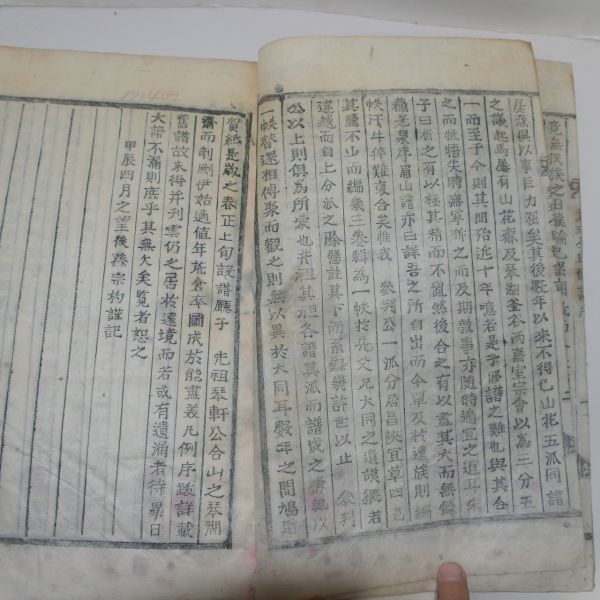 竟無收族之日矣論
居孫俱以事巨力至矣其後數年以來不得已山花五派同譜
之議起焉屢有山花齋及琴湖釜谷两齋室宗會以為三分五
一而至于今則其間殆近十年噫若是乎修譜之難也與其合
之而牴牾失時無寧析之而及期敦事亦随時適宜之道耳朱
子曰析之有以極其精而不亂然後合之有以盡其大而無餘
蘓老泉序眉山譜亦曰詳吾之所自出而今單及於遠族則編
帙汗牛猝難裒合矣惟我 叅判公一派分居昌陜宜草四邑
其麗不少而編幾三卷輯為一帙於先父兄大同之遺謨猥若
違越而自上分派之際懸註其下而系錄幾許世以止 叅判
公以上則俱為所蒙也并祖其祖各譜其派而譜成之後輒以
一帙眷還相傳聚而觀之則無以異於大同耳數年之間鳩財
貿紙是歲之春正上旬設譜廳于 先祖琴軒公合山之琴湖
齋而剞劂伊始適值年荒倉卒圖成於能盡義凡例序跋詳載
舊譜故未得并刋雲仍之居於遠境而若或有遺漏者待異日
大譜不漏則庶乎其無欠矣覧者恕之
甲辰四月之望後孫宗杓謹記
1904